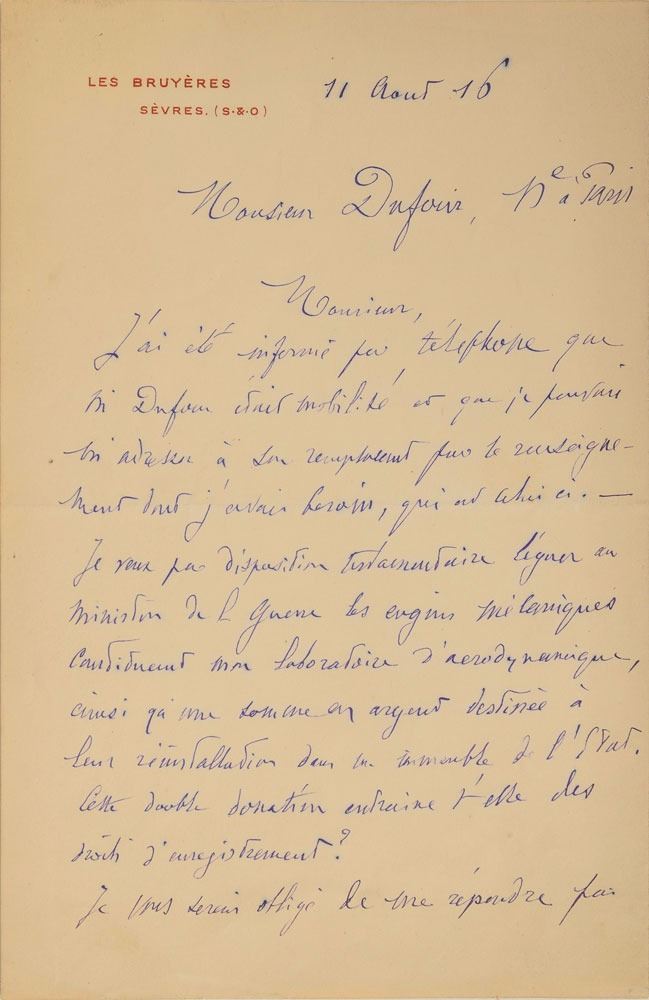 LES BRUYÈRES
SÈVRES. (S.&.O)
11 Aout 16
Monsieur Dufour, Nᵉ à Paris
Monsieur,
J'ai été informé par téléphone que
M Dufour était mobilisé et que je pouvais
m'adresser à son remplacant pour le renseigne-
ment dont j'avais besoin, qui est celui ci. —
Je veux par disposition testamentaire léguer au
Ministère de l Guerre les engins mécaniques
constituant mon laboratoire d'aerodynamique,
ainsi qu'une somme en argent destinée à
leur réinstallation dans un immeuble de l'Etat.
Cette double donation entraine t'elle des
droits d'enregistrement ?
Je vous serais obligé de me répondre par